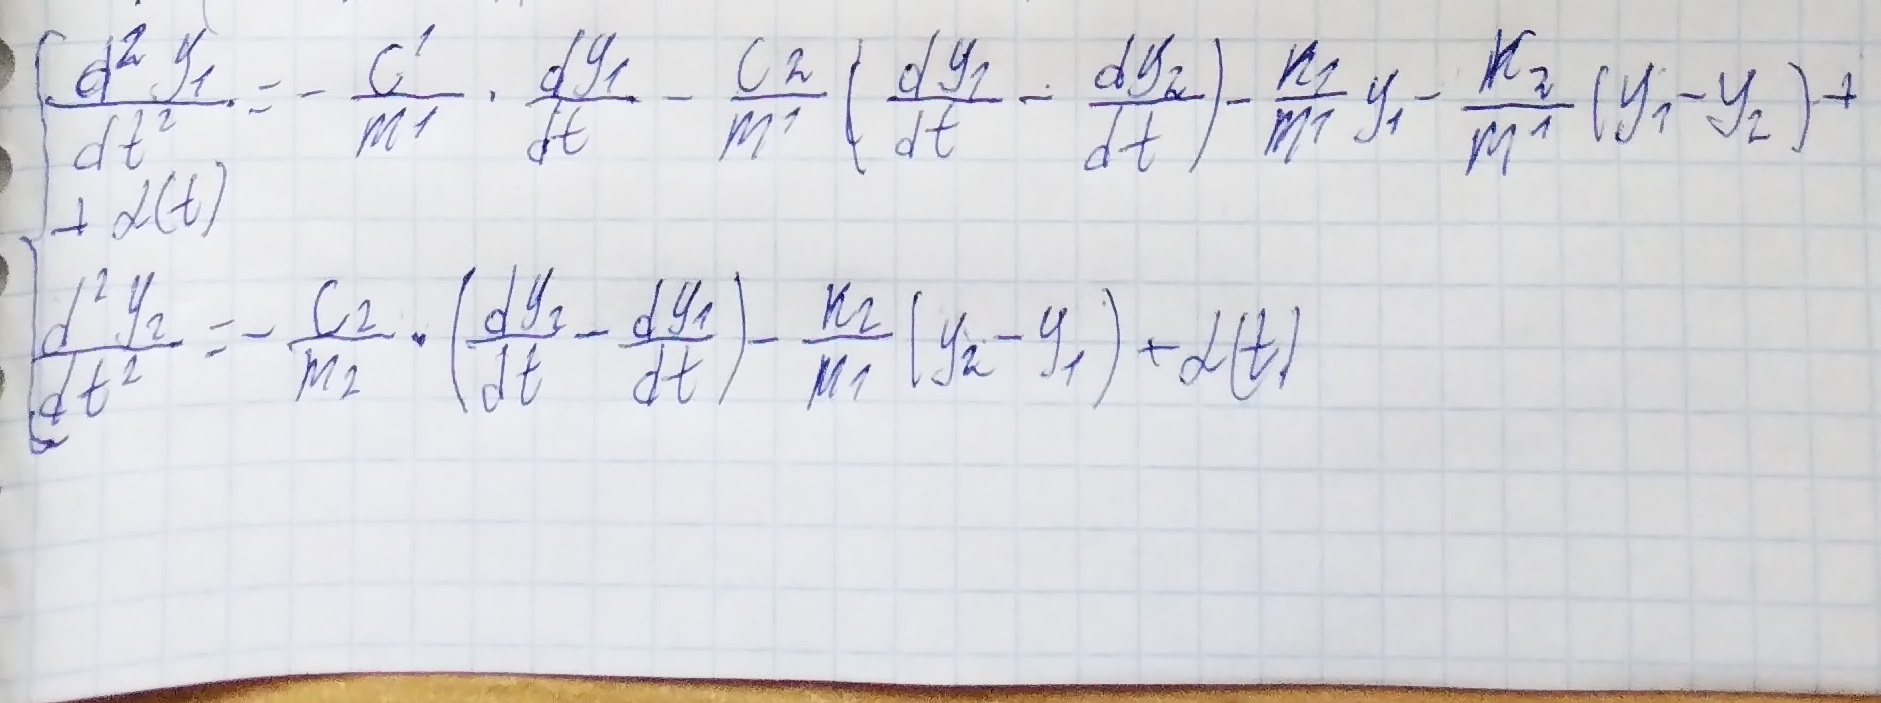 d²y₁/dt² = - c1/m1 · dy₁/dt - c2/m1 (dy₁/dt - dy₂/dt) - k1/m1 y₁ - k₂/m1 (y₁ - y₂) +
+ α(t)
d²y₂/dt² = - c2/m₂ · (dy₂/dt - dy₁/dt) - k2/m1 (y₂ - y₁) + α(t)